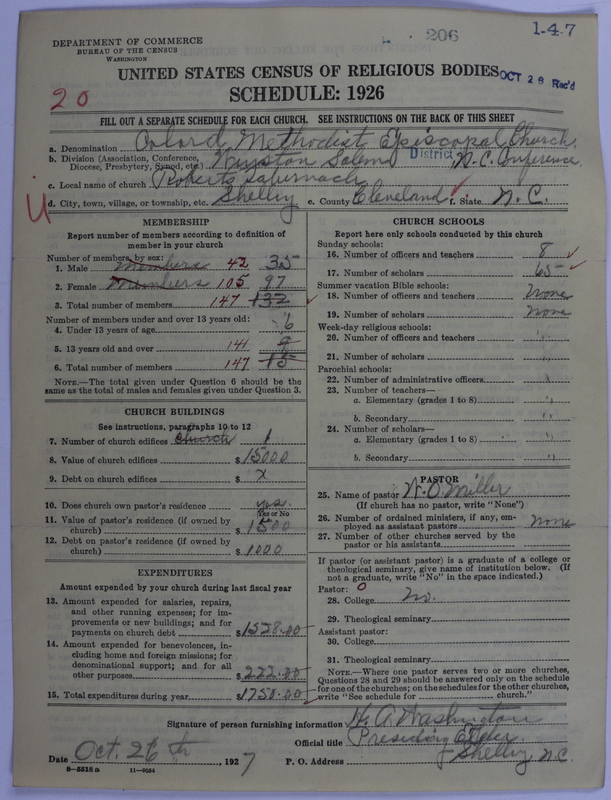 DEPARTMENT OF COMMERCE
BUREAU OF THE CENSUS
WASHINGTON
206
1-4-7
UNITED STATES CENSUS OF RELIGIOUS BODIES
OCT 28 Rec'd
20
SCHEDULE: 1926
FILL OUT A SEPARATE SCHEDULE FOR EACH CHURCH. SEE INSTRUCTIONS ON THE BACK OF THIS SHEET
a. Denomination Colord Methodist Episcopal Church
b. Division (Association, Conference, Diocese, Presbytery, Synod, etc.) Winston Salem District N.C. Conference
c. Local name of church Roberts Tabernacle
d. City, town, village, or township, etc. Shelby e. County Cleveland f. State N.C.
MEMBERSHIP
Report number of members according to definition of
member in your church
Number of members by sex:
1. Male Members 42 35
2. Female Members 105 97
3. Total number of members 147 132
Number of members under and over 13 years old:
4. Under 13 years of age 6
5. 13 years old and over 141 9
6. Total number of members 147 15
NOTE.—The total given under Question 6 should be the
same as the total of males and females given under Question 3.
CHURCH BUILDINGS
See instructions, paragraphs 10 to 12
7. Number of church edifices Church 1
8. Value of church edifices $ 15000
9. Debt on church edifices $ x
10. Does church own pastor's residence yes
Yes or No
11. Value of pastor's residence (if owned by
church) $ 1500
12. Debt on pastor's residence (if owned by
church) $ 1000
EXPENDITURES
Amount expended by your church during last fiscal year
13. Amount expended for salaries, repairs,
and other running expenses; for im-
provements or new buildings; and for
payments on church debt $ 1528.00
14. Amount expended for benevolences, in-
cluding home and foreign missions; for
denominational support; and for all
other purposes $ 222.00
15. Total expenditures during year $ 1750.00
CHURCH SCHOOLS
Report here only schools conducted by this church
Sunday schools:
16. Number of officers and teachers 8
17. Number of scholars 65
Summer vacation Bible schools:
18. Number of officers and teachers None
19. Number of scholars None
Week-day religious schools:
20. Number of officers and teachers "
21. Number of scholars "
Parochial schools:
22. Number of administrative officers "
23. Number of teachers—
a. Elementary (grades 1 to 8) "
b. Secondary "
24. Number of scholars—
a. Elementary (grades 1 to 8) "
b. Secondary "
PASTOR
25. Name of pastor W.O. Miller
(If church has no pastor, write "None")
26. Number of ordained ministers, if any, em-
ployed as assistant pastors None
27. Number of other churches served by the
pastor or his assistants
If pastor (or assistant pastor) is a graduate of a college or
theological seminary, give name of institution below. (If
not a graduate, write "No" in the space indicated.)
Pastor: 0
28. College No.
29. Theological seminary
Assistant pastor:
30. College
31. Theological seminary
NOTE.—Where one pastor serves two or more churches,
Questions 28 and 29 should be answered only on the schedule
for one of the churches; on the schedules for the other churches,
write "See schedule for church."
Signature of person furnishing information H. A. Washington
Official title Presiding Elder
Date Oct. 26th, 1927 P. O. Address Shelby N.C.
8-5518a 11-9034